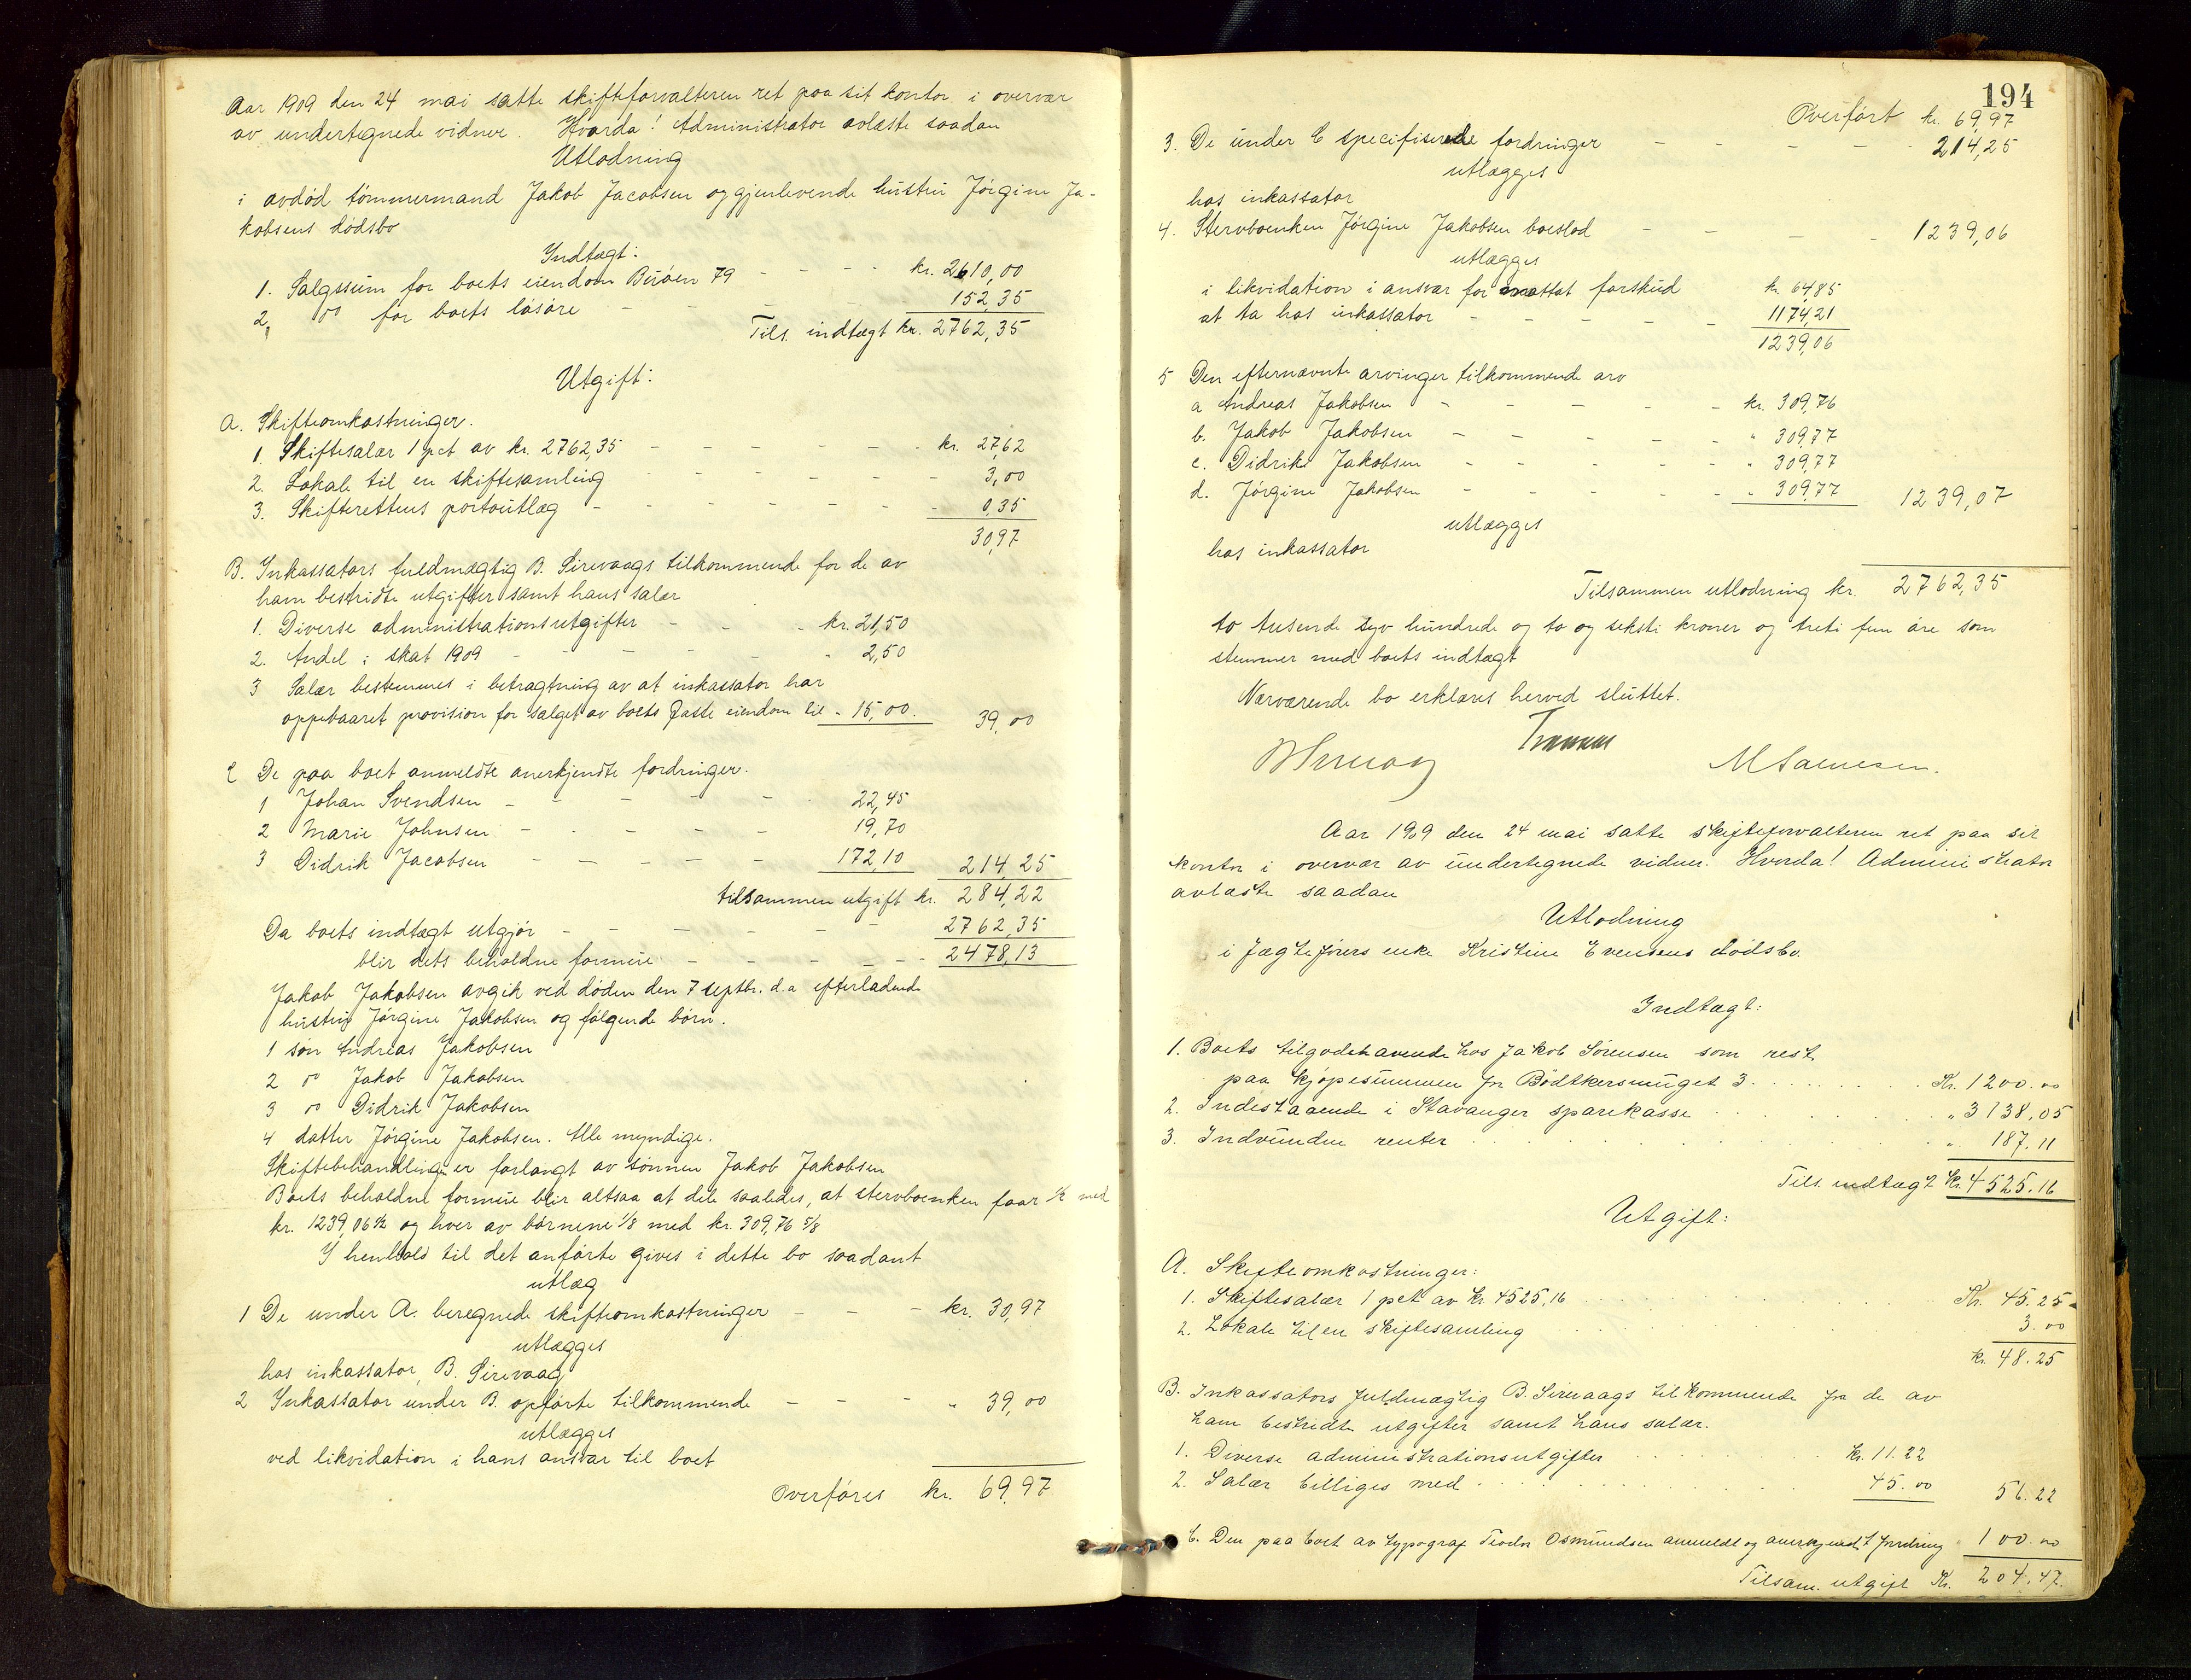 Aar 1909 den 24 mai satte skifteforvalteren ret paa sit kontor i overvær
av undertegnede vidner. Hvorda! Administrator avlæste saadan
Utlodning
i avdød tømmermand Jakob Jacobsen og gjenlevende hustru Jørgine Ja-
kobsens dødsbo
Indtægt:
1. Salgssum for boets eiendom Buøen 79 - - - - kr. 2610,00
2. do for boets løsøre - - - 152,35
Tils. indtægt kr. 2762,35
Utgift:
A. Skifteomkostninger.
1. Skiftesalær 1 pct av kr. 2762,35 - - - - - kr. 27,62
2. Lokale til en skiftesamling - - - - - 3,00
3. Skifterettens portoutlæg - - - - - - 0,35
30,97
B. Inkassators fuldmægtig B. Sirevaags tilkommende for de av
ham bestridte utgifter samt hans salær
1. Diverse administrationsutgifter - - - kr. 21,50
2. Andel i skat 1909 - - - - - " 2,50
3 Salær bestemmes i betragtning av at inkassator har
oppebaaret provision for salget av boets faste eiendom til - 15,00. 39,00
C De paa boet anmeldte anerkjendte fordringer.
1 Johan Svendsen - - - - - 22,45
2 Marie Johnsen - - - - - 19,70
3 Didrik Jacobsen - - - - - 172,10 214,25
tilsammen utgift kr. 284,22
Da boets indtægt utgjør - - - - - - 2762,35
blir dets beholdne formue - - - - - 2478,13
Jakob Jakobsen avgik ved døden den 7 septbr. d.a efterladende
hustru Jørgine Jakobsen og følgende børn.
1 søn Andreas Jakobsen
2 do Jakob Jakobsen
3 do Didrik Jakobsen
4 datter Jørgine Jakobsen. Alle myndige.
Skiftebehandling er forlangt av sønnen Jakob Jakobsen
Boets beholdne formue blir altsaa at dele saaledes, at stervboenken faar 1/2 med
kr. 1239,06 1/2 og hver av børnene 1/8 med kr. 309,76 5/8
I henhold til det anførte gives i dette bo saadant
utlæg
1 De under A. beregnede skifteomkostninger - - - kr. 30,97
utlægges
hos inkassator, B. Sirevaag
2 Inkassator under B. opførte tilkommende - - - " 39,00
utlægges
ved likvidation i hans ansvar til boet
Overføres kr. 69,97
194
Overført kr. 69,97
3. De under C specifiserede fordringer - - - - - 214,25
utlægges
hos inkassator
4. Stervboenken Jørgine Jakobsen boeslod - - - - 1239,06
utlægges
i likvidation i ansvar for mottat forskud kr. 64,85
at ta hos inkassator - - - - - 1174,21
1239,06
5 Den efternævnte arvinger tilkommende arv
a Andreas Jakobsen - - - - - kr. 309,76
b. Jakob Jakobsen - - - - - " 309,77
c. Didrik Jakobsen - - - - - " 309,77
d. Jørgine Jakobsen - - - - - " 309,77 1239,07
utlægges
hos inkassator
Tilsammen utlodning kr. 2762,35
to tusende syv hundrede og to og seksti kroner og treti fem øre som
stemmer med boets indtægt
Nærværende bo erklæres herved sluttet.
BSirevaag M Samuesen.
Aar 1909 den 24 mai satte skifteforvalteren ret paa sit
kontor i overvær av undertegnede vidner. Hvorda! Administrator
avlæste saadan
Utlodning
i Jægteførers enke Kristine Evensens dødsbo.
Indtægt:
1. Boets tilgodehavende hos Jakob Sørensen som rest
paa kjøpesummen for Bødtkersmuget 3. . . . . . . Kr. 1200.00
2. Indestaaende i Stavanger sparekasse . . . . . . " 3138.05
3. Indvundne renter . . . . . . . . " 187.11
Tils. indtægt Kr. 4525.16
Utgift:
A. Skifteomkostninger:
1. Skiftesalær 1 pct av kr. 4525,16 . . . . . . Kr. 45.25
2. Lokale til en skiftesamling . . . . . . 3.00
kr. 48.25
B. Inkassators fuldmægtig B. Sirevaags tilkommende for de av
ham bestridte utgifter samt hans salær.
1. Diverse administrationsutgifter . . . . . Kr. 11.22
2. Salær billiges med . . . . . . . 45.00 56.22
C. Den paa boet av typograf Teodor Osmundsen anmeldt og anerkjendt fordring " 100.00
Tilsam. utgift Kr. 204.47.